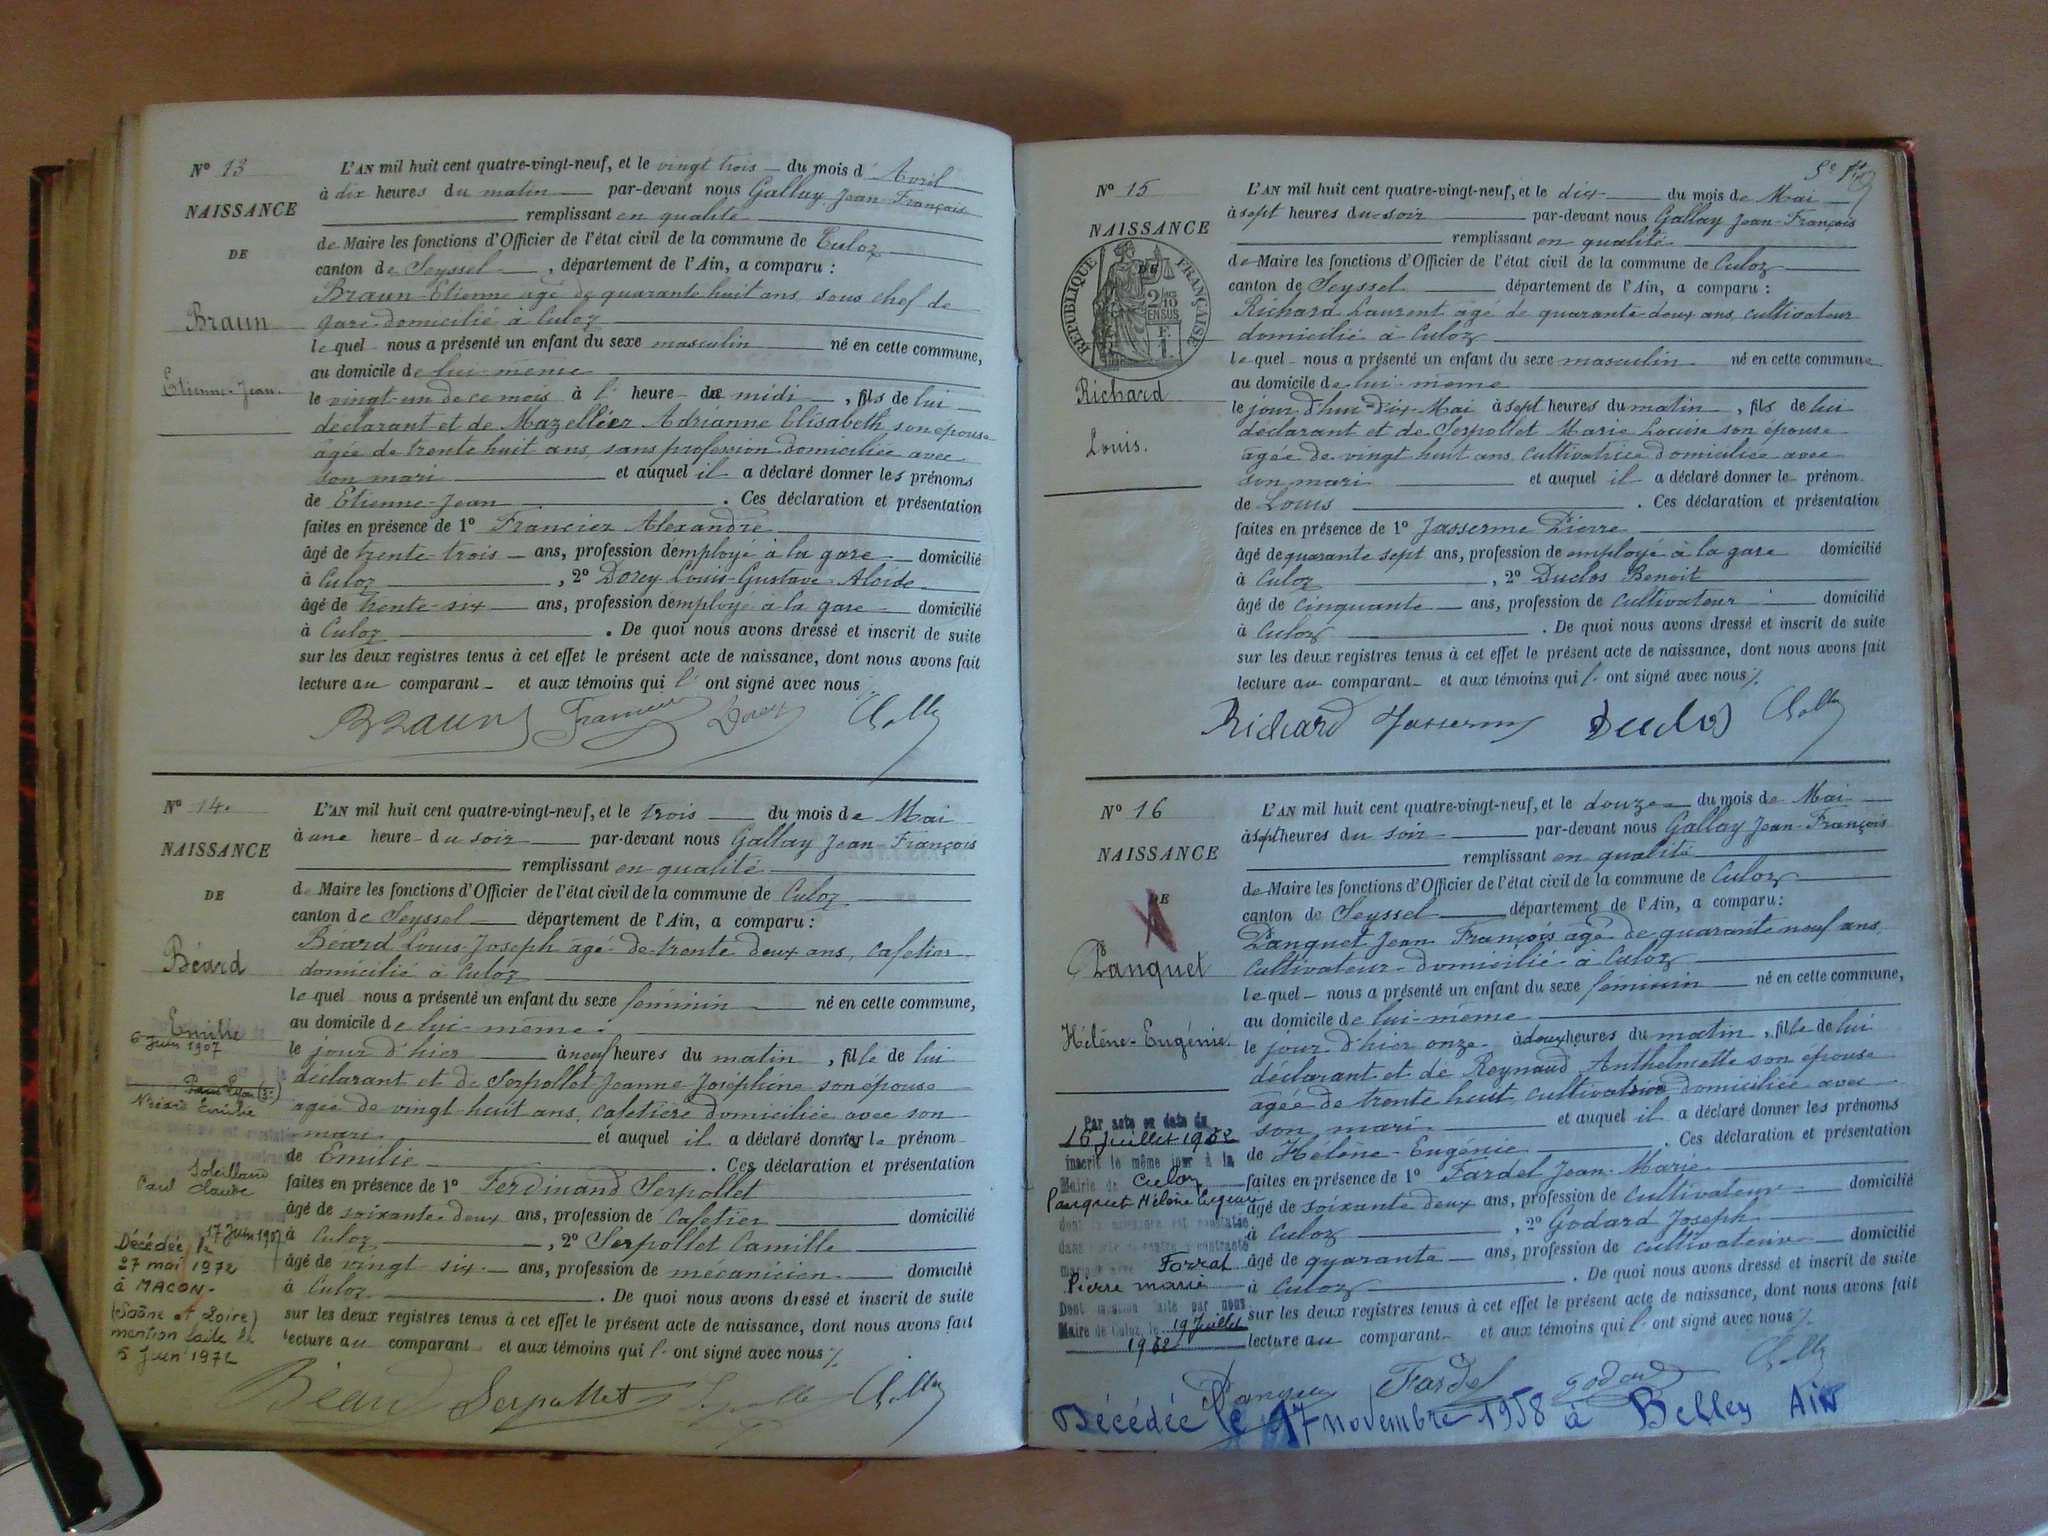 N° 13
NAISSANCE
DE
Braun
Etienne-Jean
L'AN mil huit cent quatre-vingt-neuf, et le vingt trois du mois d'Avril
à dix heures du matin par-devant nous Gallay Jean-François
remplissant en qualité
de Maire les fonctions d'Officier de l'état civil de la commune de Culoz
canton de Seyssel, département de l'Ain, a comparu :
Braun Etienne agé de quarante huit ans, sous chef de
gare domicilié à Culoz
lequel nous a présenté un enfant du sexe masculin né en cette commune,
au domicile de lui-même
le vingt-un de ce mois à l' heure de midi, fils de lui
déclarant et de Mazellier Adrianne Elisabeth son épouse
agée de trente huit ans, sans profession domiciliée avec
son mari et auquel il a déclaré donner les prénoms
de Etienne-Jean. Ces déclaration et présentation
faites en présence de 1° Francier Alexandre
âgé de trente-trois ans, profession d'employé à la gare domicilié
à Culoz, 2° Dorey Louis-Gustave
âgé de trente-six ans, profession d'employé à la gare domicilié
à Culoz. De quoi nous avons dressé et inscrit de suite
sur les deux registres tenus à cet effet le présent acte de naissance, dont nous avons fait
lecture au comparant et aux témoins qui l' ont signé avec nous
Braun Francier Dorey
N° 14
NAISSANCE
DE
Béard
Emilie
6 Juin 1907
Béard Emilie
Soleilland
Paul Claude
17 Juin 1907
Décédée le
27 mai 1972
à MACON
(Saône et Loire)
mention faite le
5 Juin 1972
L'AN mil huit cent quatre-vingt-neuf, et le trois du mois de Mai
à une heure du soir par-devant nous Gallay Jean-François
remplissant en qualité
de Maire les fonctions d'Officier de l'état civil de la commune de Culoz
canton de Seyssel département de l'Ain, a comparu :
Béard Louis-Joseph agé de trente deux ans, cafetier
domicilié à Culoz
lequel nous a présenté un enfant du sexe féminin né en cette commune,
au domicile de lui-même.
le jour d'hier à neuf heures du matin, fille de lui
déclarant et de Serpollet Jeanne Joséphine son épouse
agée de vingt huit ans, cafetière domiciliée avec son
mari et auquel il a déclaré donner le prénom
de Emilie. Ces déclaration et présentation
faites en présence de 1° Ferdinand Serpollet
âgé de soixante-deux ans, profession de cafetier domicilié
à Culoz, 2° Serpollet Camille
âgé de vingt six ans, profession de mécanicien domicilié
à Culoz. De quoi nous avons dressé et inscrit de suite
sur les deux registres tenus à cet effet le présent acte de naissance, dont nous avons fait
lecture au comparant et aux témoins qui l' ont signé avec nous
Béard Serpollet
N° 15
NAISSANCE
DE
RÉPUBLIQUE FRANÇAISE
2/10 EN SUS
Richard
Louis.
L'AN mil huit cent quatre-vingt-neuf, et le dix du mois de Mai
à sept heures du soir par-devant nous Gallay Jean-François
remplissant en qualité
de Maire les fonctions d'Officier de l'état civil de la commune de Culoz
canton de Seyssel département de l'Ain, a comparu :
Richard Laurent agé de quarante deux ans, cultivateur
domicilié à Culoz
lequel nous a présenté un enfant du sexe masculin né en cette commune
au domicile de lui-même
le jour d'hui dix Mai à sept heures du matin, fils de lui
déclarant et de Serpollet Marie Louise son épouse
agée de vingt huit ans, cultivatrice domiciliée avec
son mari et auquel il a déclaré donner le prénom
de Louis. Ces déclaration et présentation
faites en présence de 1° Jasserme Pierre
âgé de quarante sept ans, profession de employé à la gare domicilié
à Culoz, 2° Duclos Benoit
âgé de cinquante ans, profession de cultivateur domicilié
à Culoz. De quoi nous avons dressé et inscrit de suite
sur les deux registres tenus à cet effet le présent acte de naissance, dont nous avons fait
lecture au comparant et aux témoins qui l' ont signé avec nous
Richard Jasserme Duclos
N° 16
NAISSANCE
DE
Panquet
Hélène-Eugénie
Par acte en date du
inscrit le même jour à la
Mairie de Culoz
Panquet Hélène Eugénie
Pierre marie
Dont mention faite par nous
Maire de Culoz, le 19 Juillet
L'AN mil huit cent quatre-vingt-neuf, et le douze du mois de Mai
à sept heures du soir par-devant nous Gallay Jean-François
remplissant en qualité
de Maire les fonctions d'Officier de l'état civil de la commune de Culoz
canton de Seyssel département de l'Ain, a comparu :
Panquet Jean François agé de quarante neuf ans,
cultivateur domicilié à Culoz
lequel nous a présenté un enfant du sexe féminin né en cette commune,
au domicile de lui-même
le jour d'hier onze à deux heures du matin, fille de lui
déclarant et de Reynaud Anthelmette son épouse
agée de trente huit, cultivatrice domiciliée avec
son mari et auquel il a déclaré donner les prénoms
de Hélène-Eugénie. Ces déclaration et présentation
faites en présence de 1° Fardel Jean-Marie
âgé de soixante deux ans, profession de cultivateur domicilié
à Culoz, 2° Godard Joseph
âgé de quarante ans, profession de cultivateur domicilié
à Culoz. De quoi nous avons dressé et inscrit de suite
sur les deux registres tenus à cet effet le présent acte de naissance, dont nous avons fait
lecture au comparant et aux témoins qui l' ont signé avec nous
Panquet Fardel Godard
Décédée le 17 novembre 1958 à Belley Ain